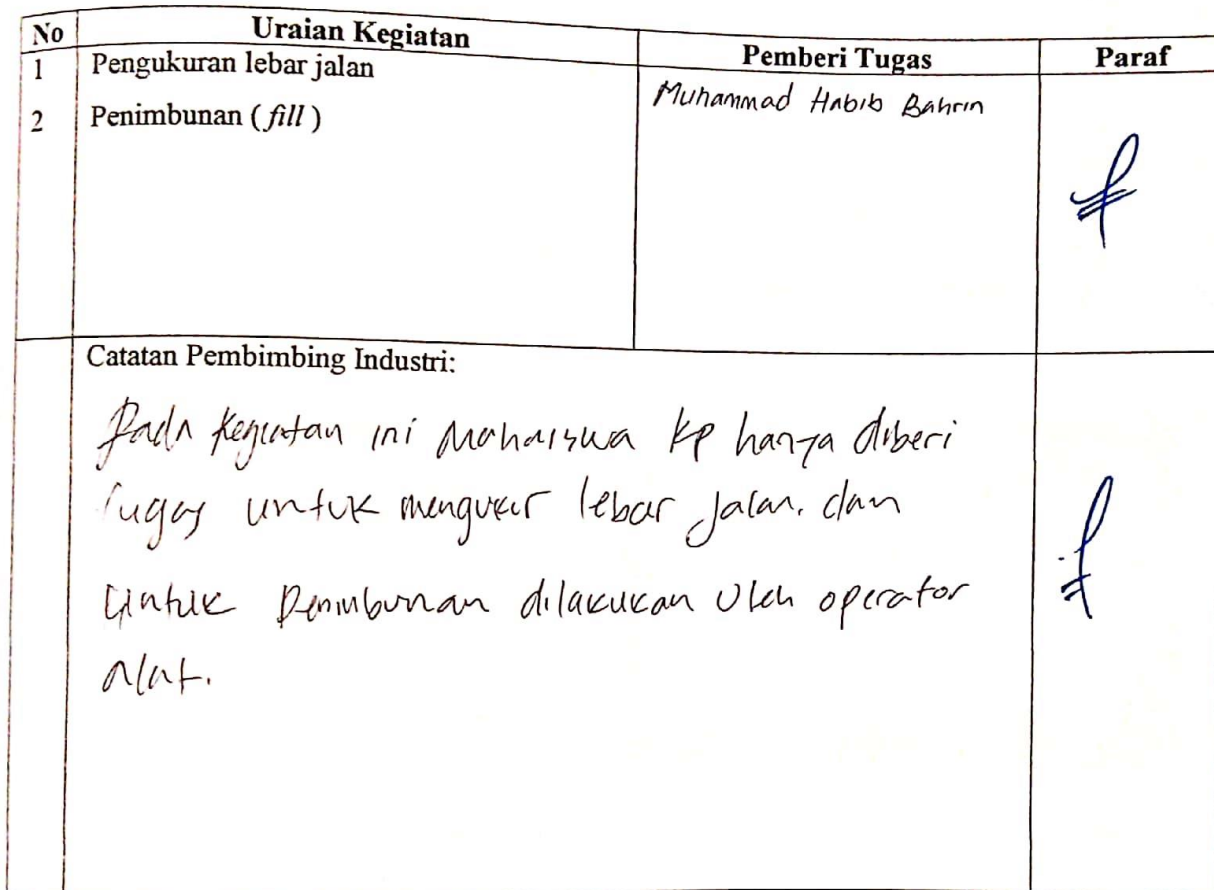 No Uraian Kegiatan Pemberi Tugas Paraf
1 Pengukuran lebar jalan
Muhammad Habib Bahrin
2 Penimbunan (fill)
Catatan Pembimbing Industri:
Pada Kegiatan ini Mahaiswa KP hanya diberi
Tugas untuk mengukur lebar jalan. dan
Untuk Penimbunan dilakukan Oleh operator
alat.